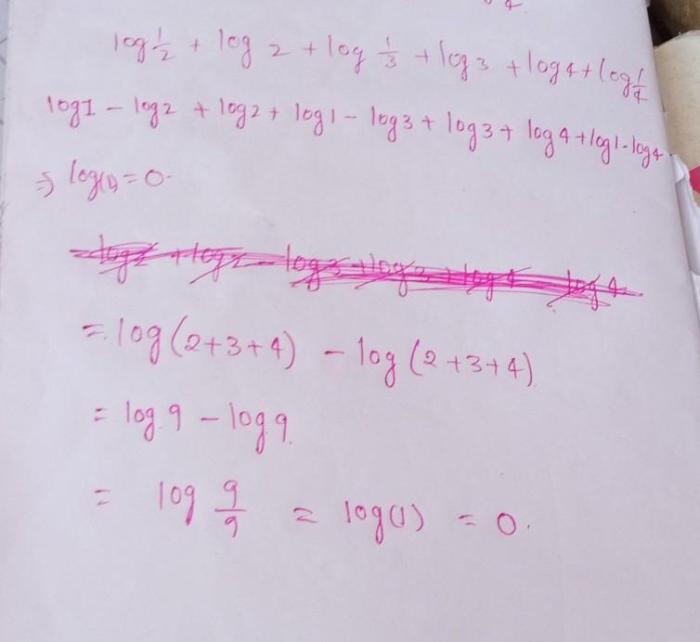 log 1/2 + log 2 + log 1/3 + log 3 + log 4 + log 1/4
log 1 - log 2 + log 2 + log 1 - log 3 + log 3 + log 4 + log 1 - log 4
⇒ log(1) = 0.
= log (2+3+4) - log (2+3+4)
= log 9 - log 9.
= log 9/9 = log(1) = 0.